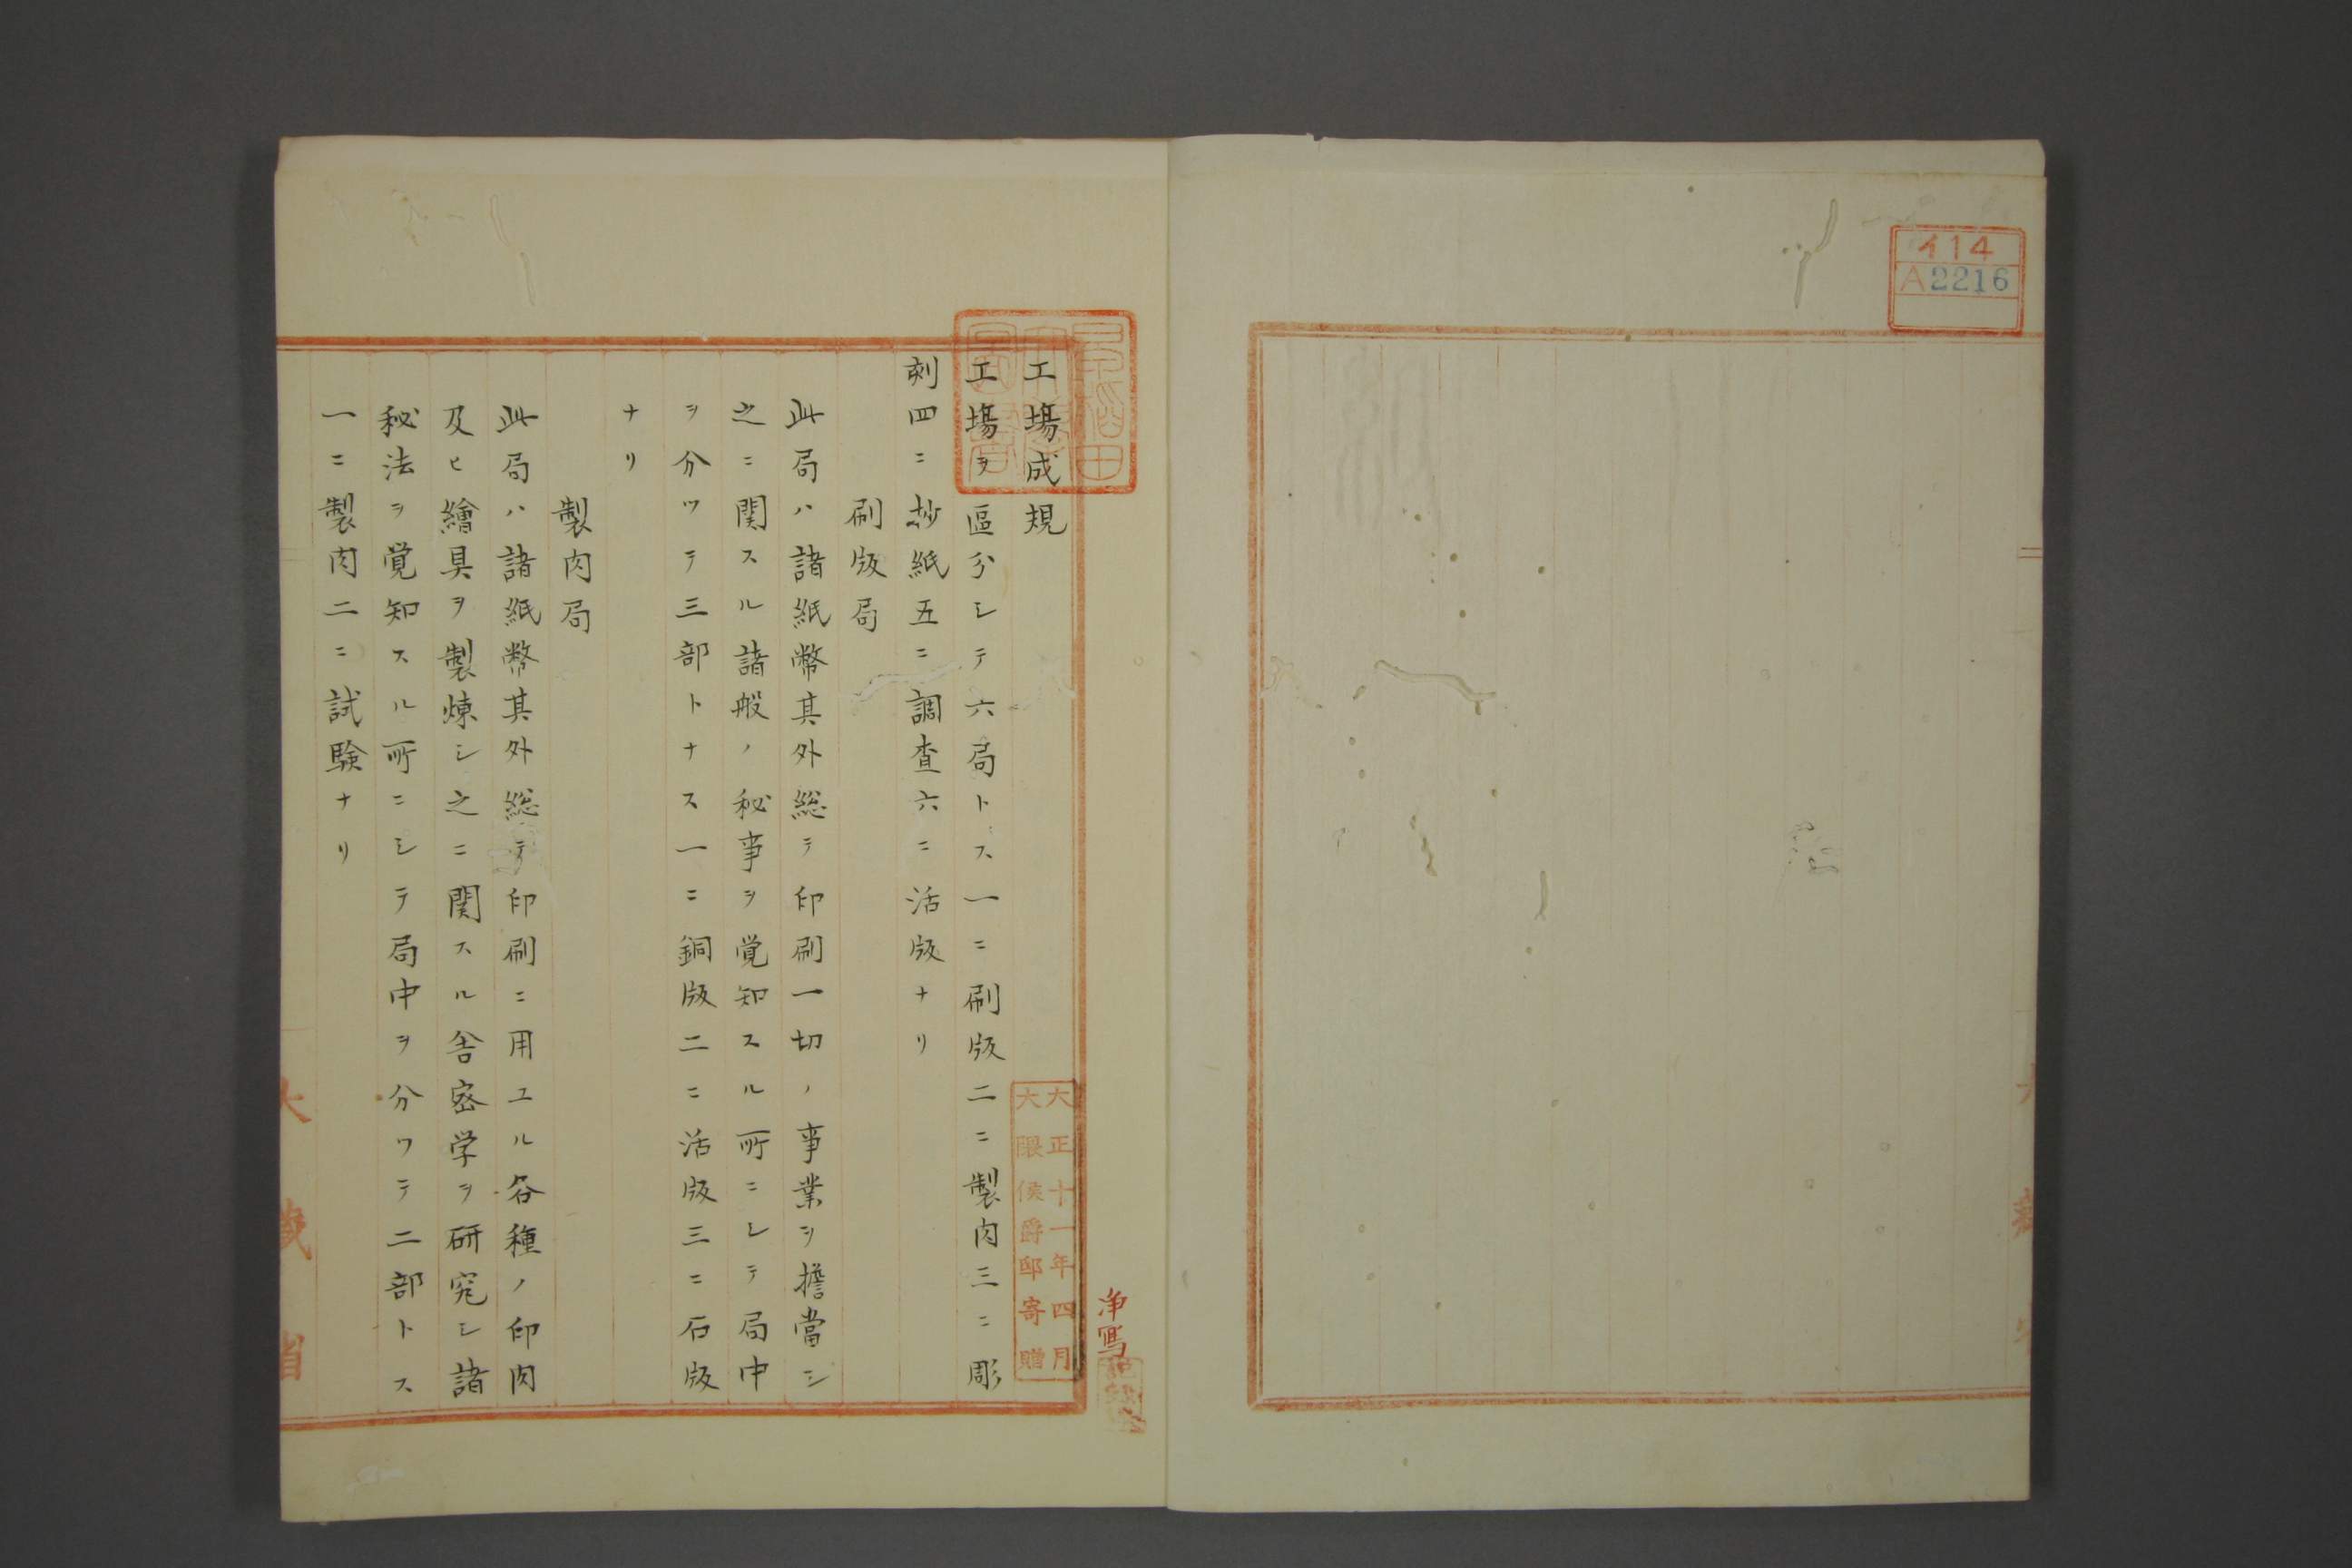 イ14
A2216
工塲成規
工塲ヲ區分シテ六局トス一ニ刷版二ニ製肉三ニ彫
刻四ニ抄紙五ニ調査六ニ活版ナリ
刷版局
此局ハ諸紙幣其外総テ印刷一切ノ事業ヲ擔當シ
之ニ関スル諸般ノ秘事ヲ覚知スル所ニシテ局中
ヲ分ツテ三部トナス一ニ銅版二ニ活版三ニ石版
ナリ
製肉局
此局ハ諸紙幣其外総テ印刷ニ用ユル各種ノ印肉
及ヒ繪具ヲ製煉シ之ニ関スル舎密学ヲ研究シ諸
秘法ヲ覚知スル所ニシテ局中ヲ分ツテ二部トス
一ニ製肉二ニ試験ナリ
大正十一年四月
大隈侯爵邸寄贈
浄寫
大藏省